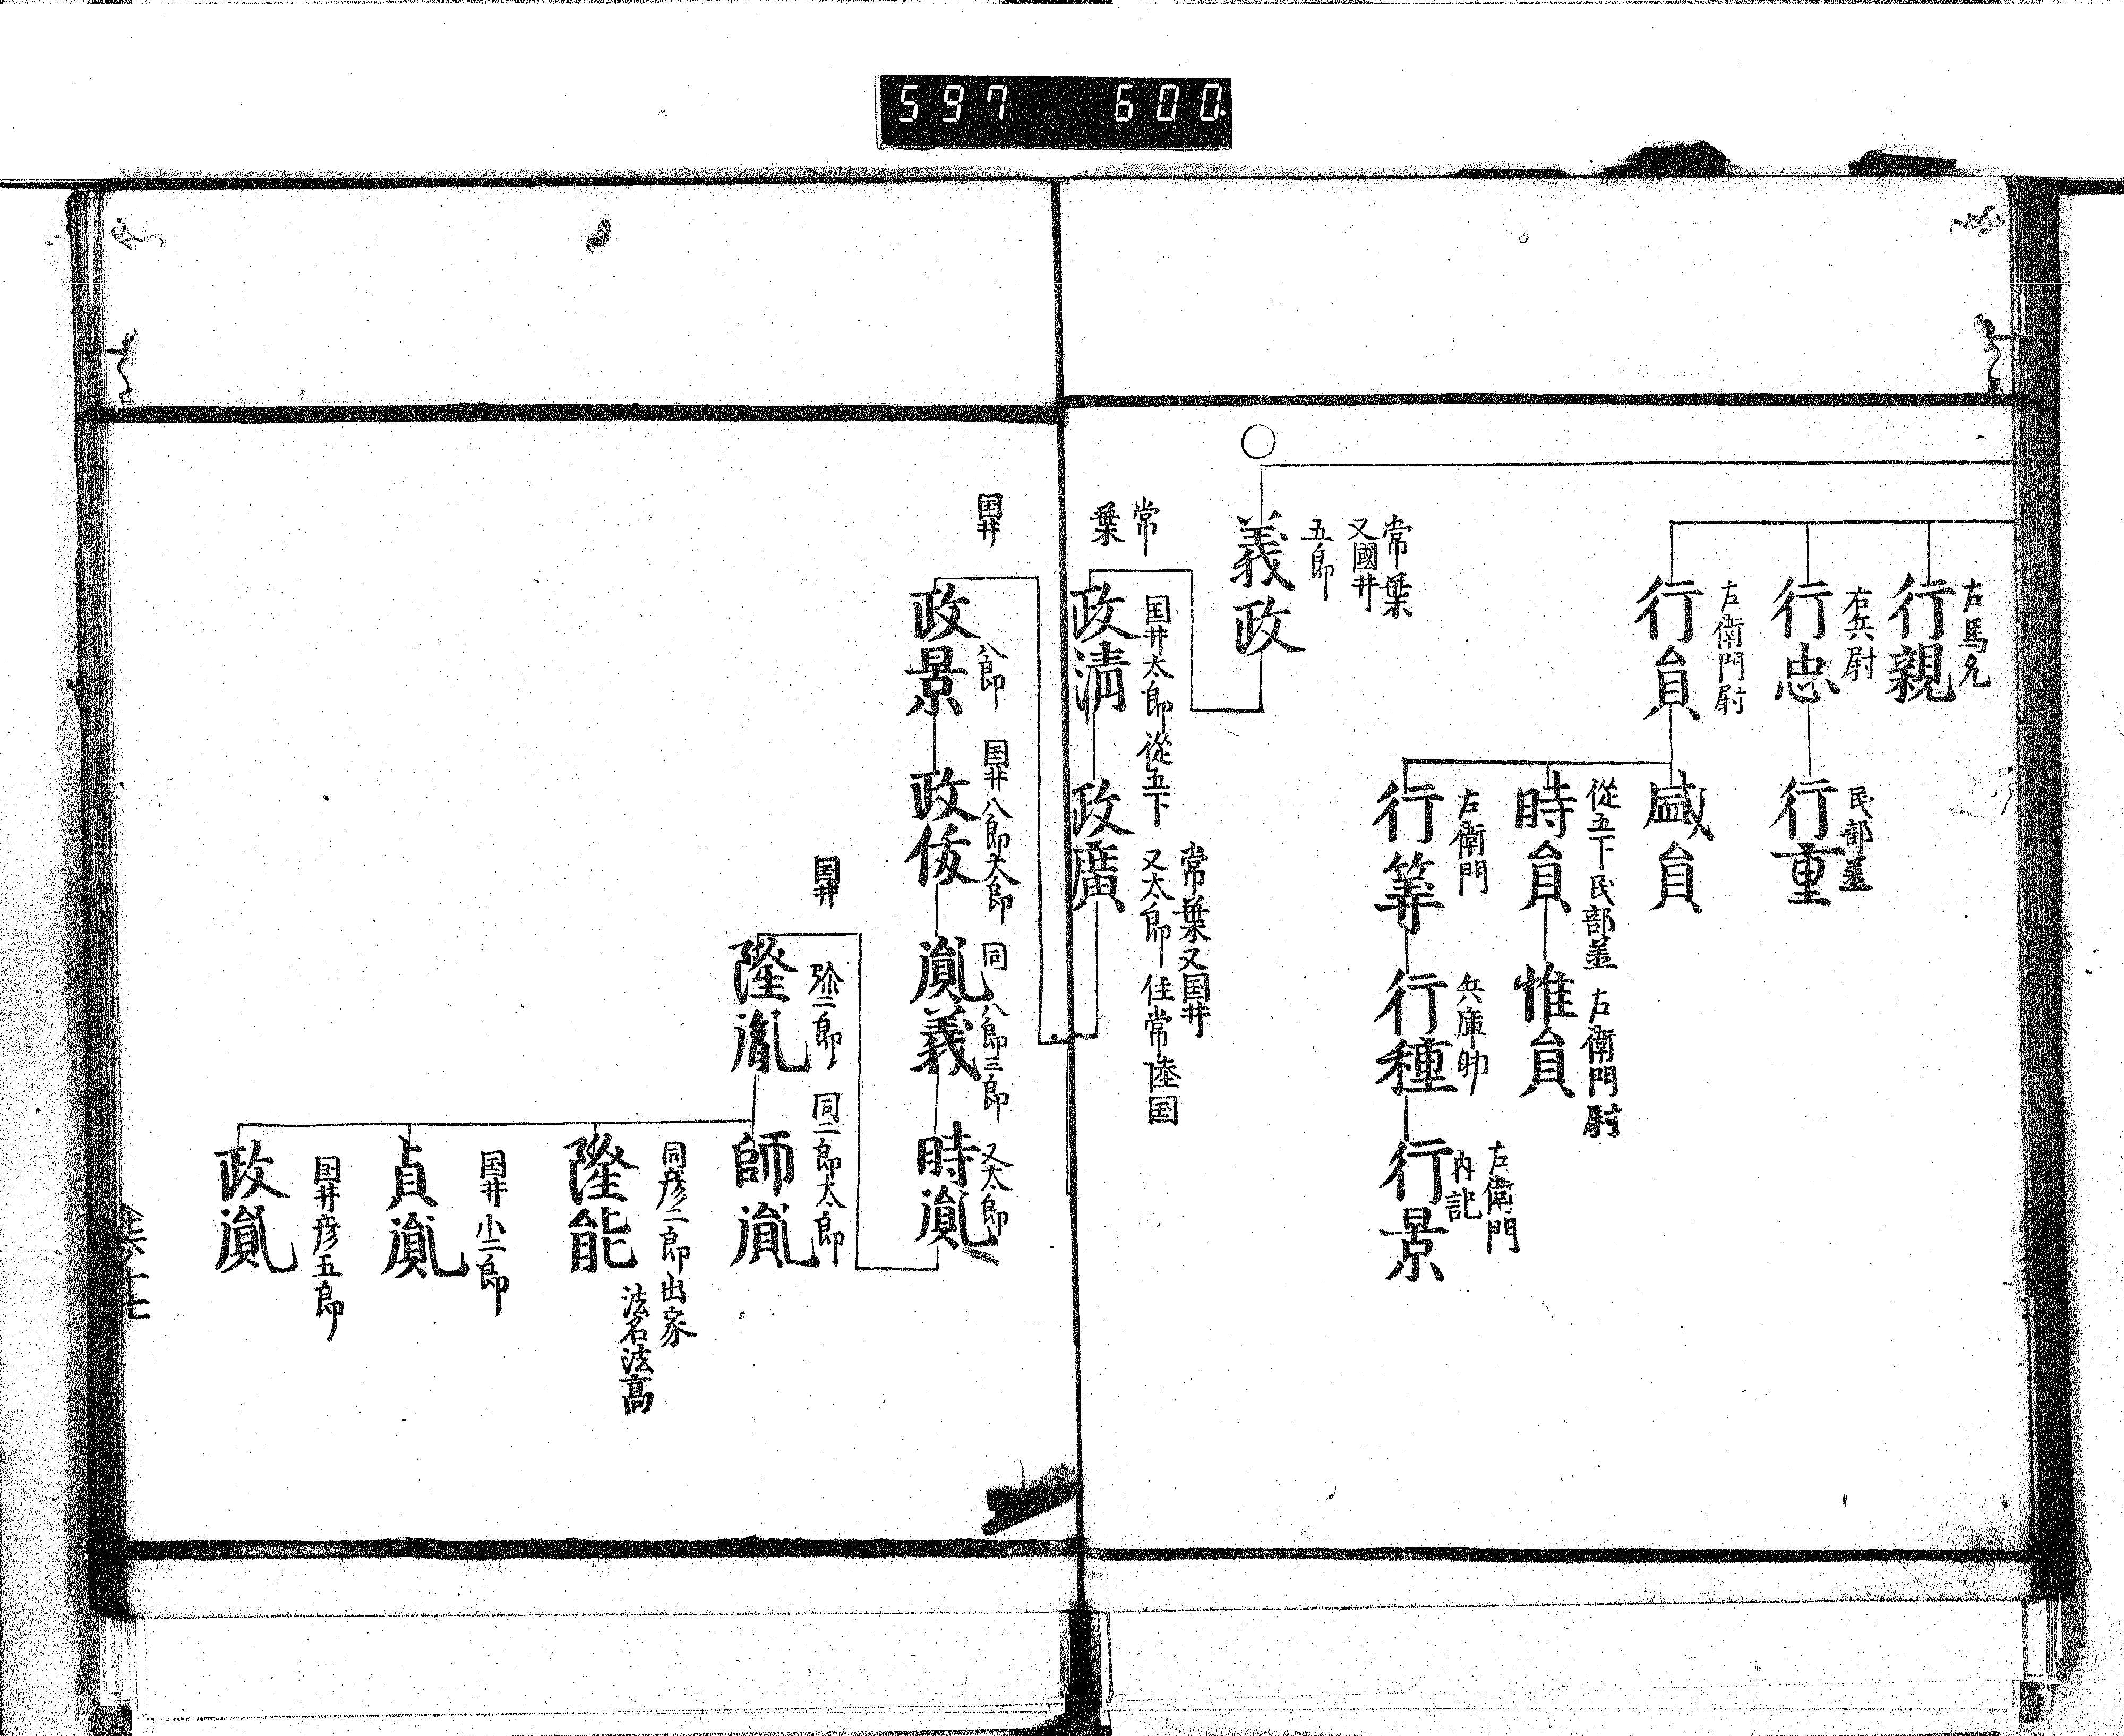 597 600.
右馬允
行親
右兵尉
行忠
民部丞
行重
左衛門尉
行員
盛員
從五下民部丞
時員
左衛門尉
惟員
左衛門
行䓁
兵庫助
行種
左衛門
内記
行景
常葉
又國井
五郎
義政
常葉
国井太郎從五下
政淸
常葉又国井
又太郎住常陸国
政廣
国井
八郎
政景
国井八郎太郎
政俊
同八郎三郎
胤義
又太郎
時胤
国井
弥二郎
隆胤
同二郎太郎
師胤
同彦二郎出家
法名法高
隆能
国井小二郎
貞胤
国井彦五郎
政胤